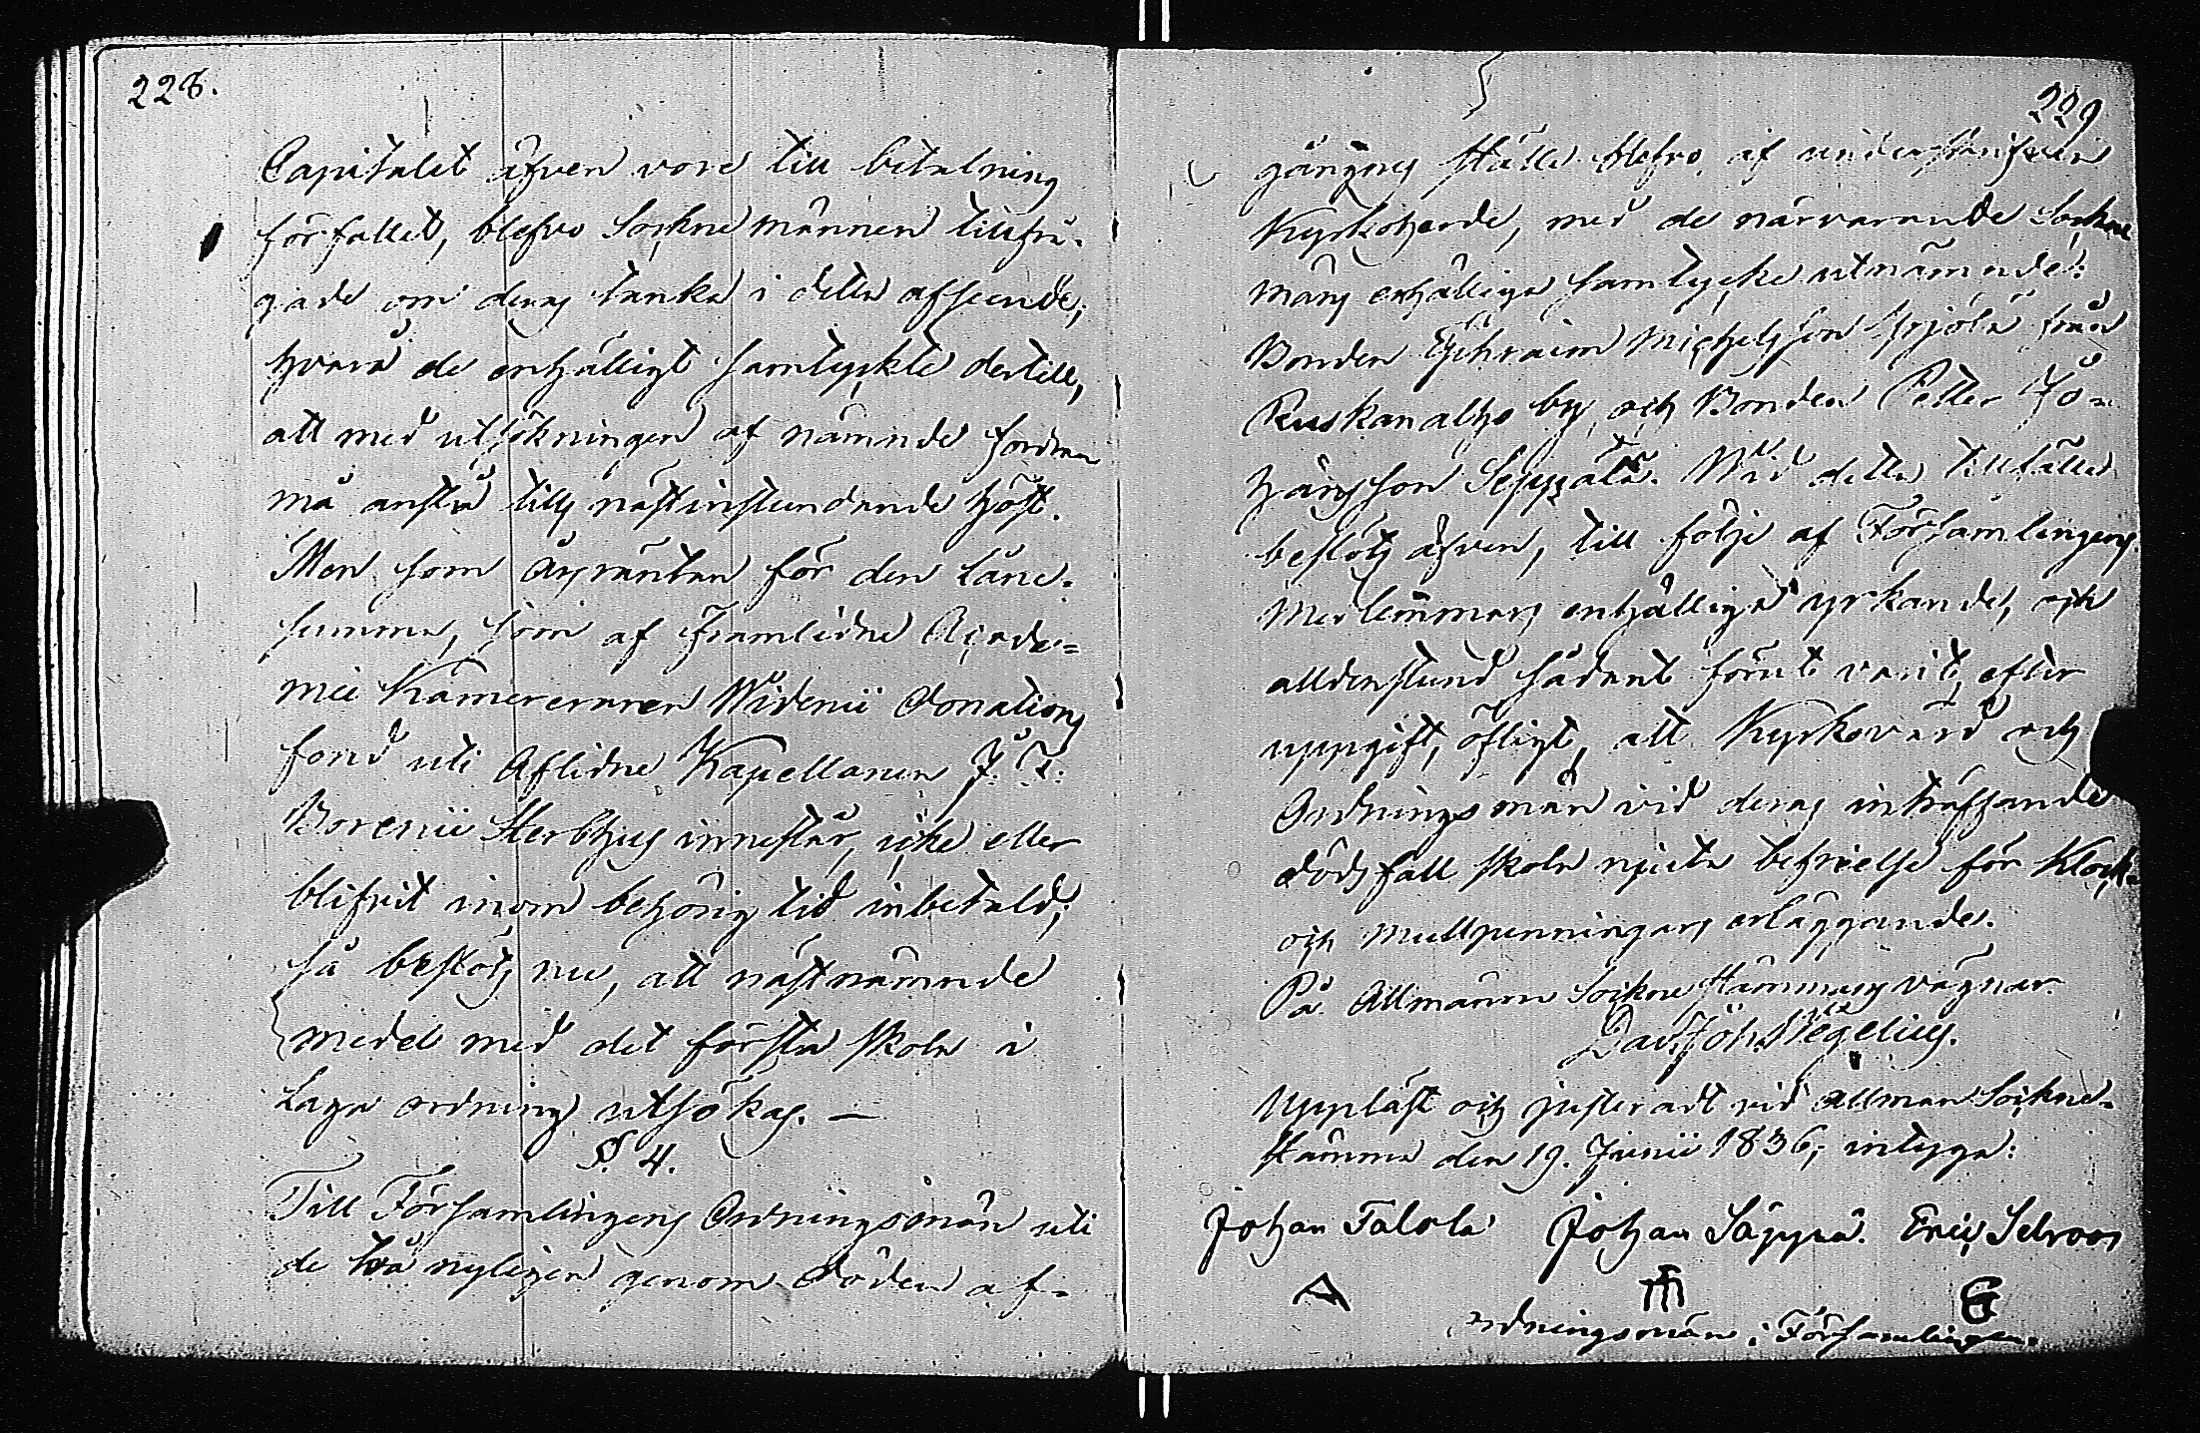 228.
Capitalet äfven vore till betalning
förfallet, blefvo Socknemännen tillfrå-
gade om deras tanka i detta afseende;
hvarå de enhälligt samtyckte dertill,
att med utsökningen af nämnde fordran
må anstå tills nästinstundande höst.
Men som Årsräntan för den Låne-
summa, som af Framlidne Acade=
mie Kamereraren Widenii Donations
fond uti Aflidne Kapellanen J. T:
Borenii Sterbhus innestår, icke eller
blifvit inom behörig tid inbetald;
så beslöts nu, att nästnämnde
medel med det första skola i
Laga ordning utsökas. —
§. 4.
Till Församlingens Ordningsmän uti
de två nyligen genom döden af-
229
gångnes ställe blefvo af undertecknad
Kyrkoherde, med de närvarande Sockne
mäns enhälliga samtycke utnämnde:
Bonden Ephraim Michelsson Yrjölä från
Ruskanalho by och Bonden Petter Jo=
hansson Seppälä. Wid detta tillfälle
beslöts äfven, till följe af Församlingens
Medlemmars enhälliga yrkande, och
alldenstund sådant förut varit, efter
uppgift, öfligt, att Kyrkovärd och
Ordningsmän vid deras inträffande
dödsfall skola njuta befrielse för Klock-
och Mullpenningars erläggande.
På Allmänna Sockne Stämmans vägnar.
Dav. Joh. Stegelius.
Uppläst och justeradt vid Allmän Sockne-
Stämma den 19. Junii 1836, intyga:
Johan Talola Johan Säppä. Eric Selroos
Ordningsmän i Församlingen.